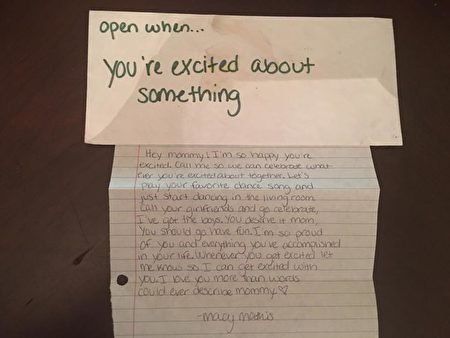 open when...
you're excited about
something
Hey mommy! I'm so happy you're
excited. Call me so we can celebrate what
ever you're excited about together. Let's
play your favorite dance song and
just start dancing in the living room.
Call your girlfriends and go celebrate,
I've got the boys. You deserve it mom,
you should go have fun. I'm so proud
of you and everything you've accomplished
in your life. Whenever you get excited let
me know so I can get excited with
you. I love you more than words
could ever describe mommy.♡
-Macy Mathis